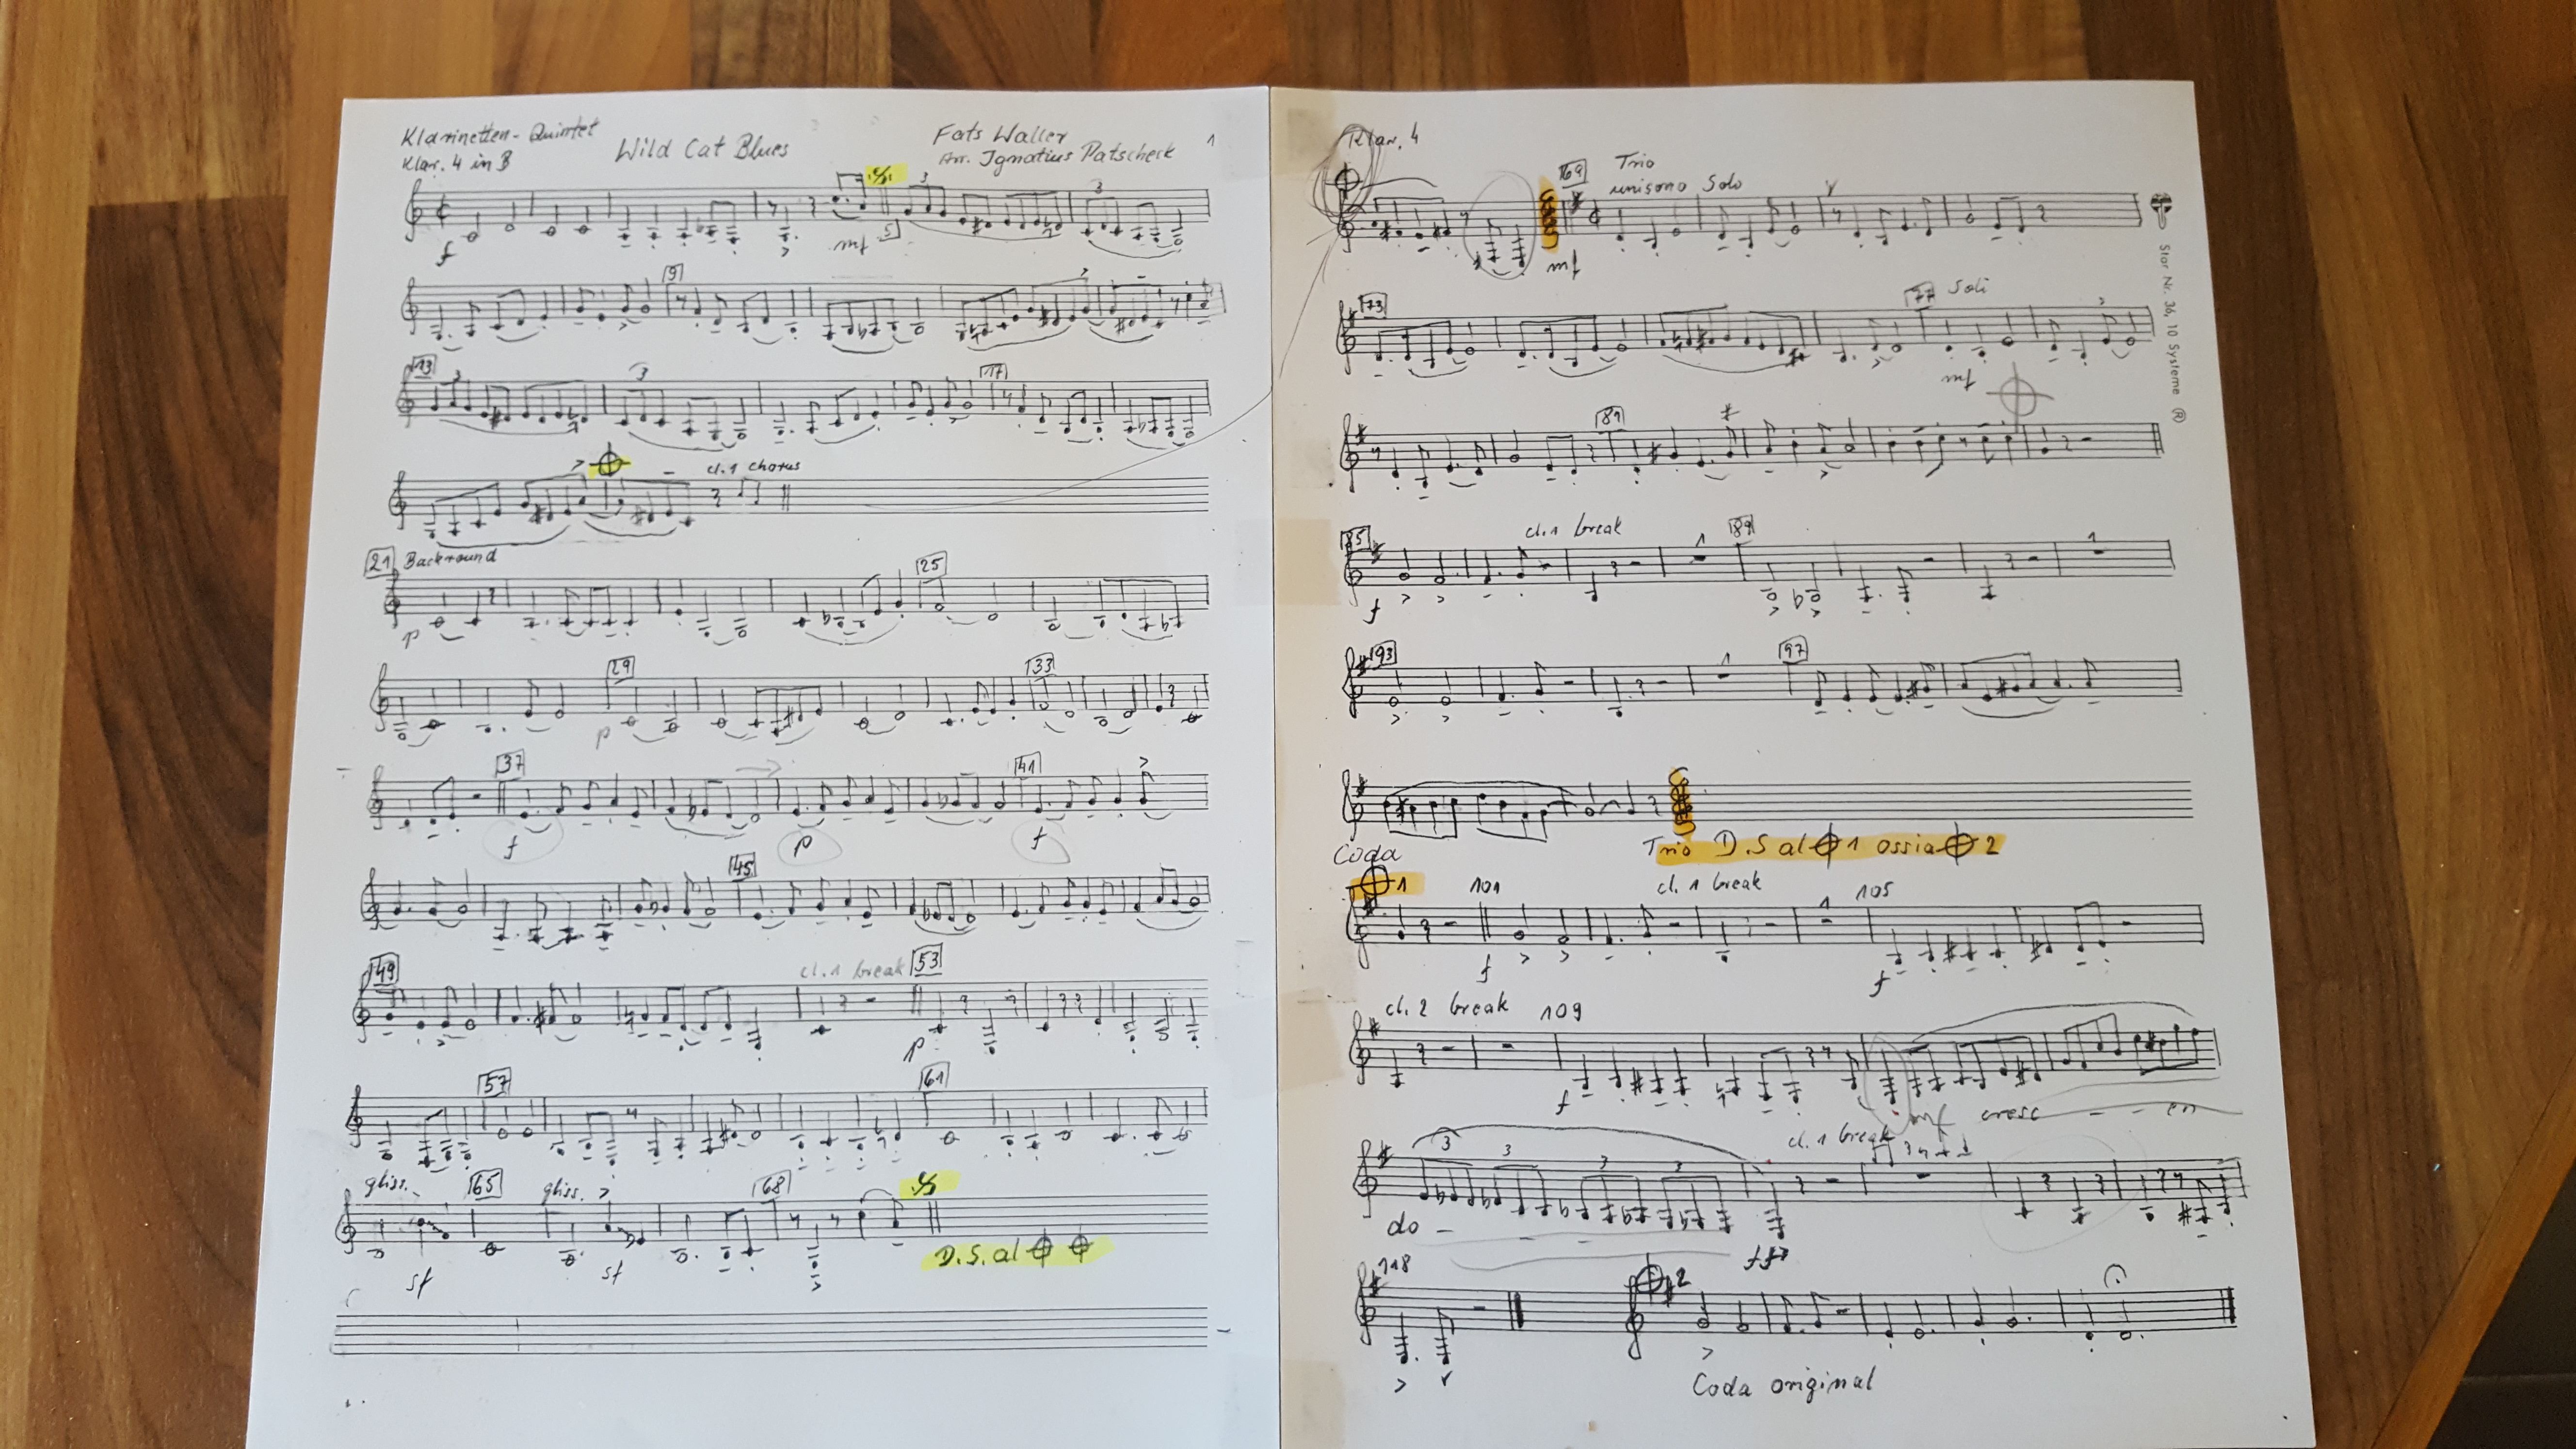 Klarinetten-Quintet
Klar. 4 in B
Wild Cat Blues
Fats Waller
Arr. Ignatius Patscheck
1
3
3
f
mf
5
9
13
3
3
17
cl. 1 chorus
21 Backround
25
p
29
33
p
37
41
f
p
f
45
49
cl. 1 break
53
p
57
61
gliss.
65
gliss.
68
sf
sf
D.S. al
Klar. 4
169
Trio
unisono Solo
mf
73
77 Soli
mf
81
85
cl. 1 break
1
89
1
f
93
1
97
Trio D.S al 1 ossia 2
Coda
1
101
cl. 1 break
1
105
f
f
cl. 2 break
109
f
mf cresc - - en
3
3
3
3
cl. 1 break
do -
118
2
Coda original
Star Nr. 36, 10 Systeme ®